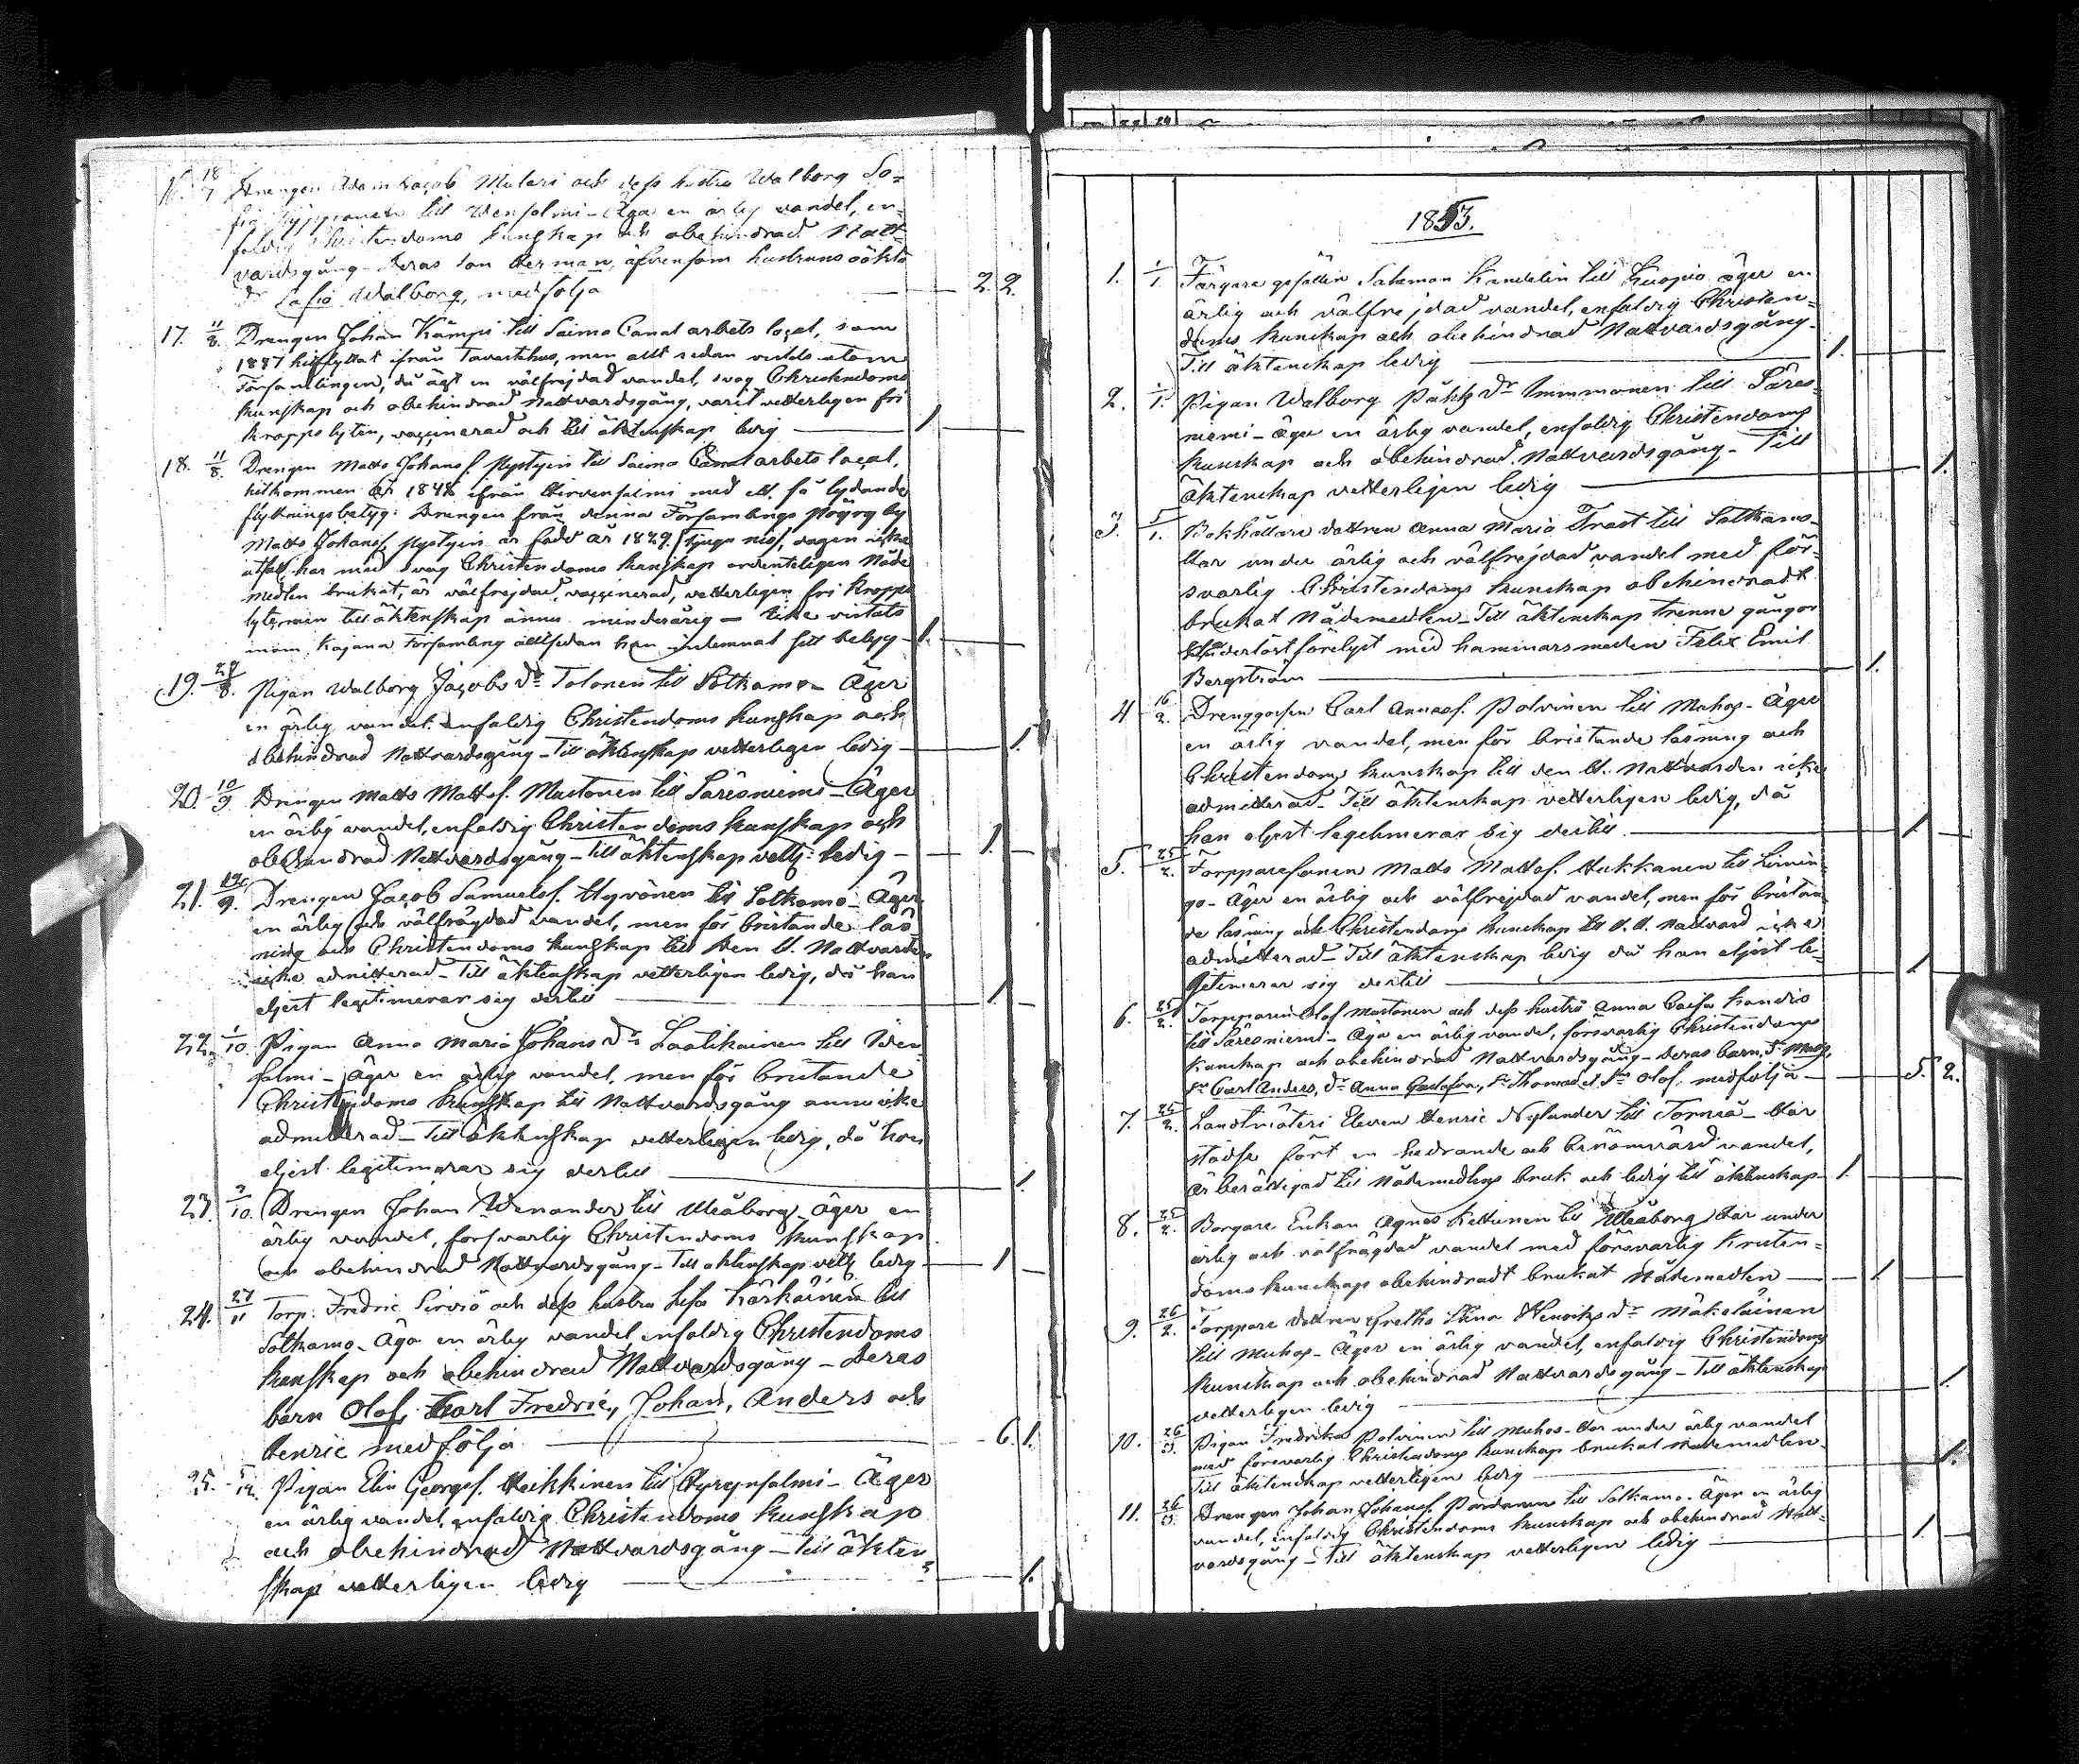 16. 18/7 Drengen Adam Jacob Mulari och dess hustru Walborg So=
till Idensalmi - Äga en ärlig vandel, en=
faldig Christendoms kunskap och obehindrad Natt=
vardsgång - Deras son Herman, äfvensom hustruns oäkta
dr Cajsa Walborg, medfölja 2. 2.
17. 11/8. Drengen Johan Kämpi till Saima Canal arbets local, som
1847 hitflyttat ifrån Tavastehus, men allt sedan vistats utom
Församlingen, då ägt en välfrejdad vandel, svag Christendoms
kunskap och obehindrad Nattvardsgång, varit vetterligen fri
kropps lyten, vaccinerad och till äktenskap ledig 1.
18. 11/8. Drengen Matts Johansf. Nystyin till Saima Canal arbets local,
hitkommen år 1848 ifrån Hirvensalmi med ett så lydande
flyttningsbetyg: Drengen från denna Församlings by
Matts Johansf. Nystyin är född år 1829. [tjugu nio], dagen icke
utsatt, har med svag Christendoms kunskap ordenteligen Nåde
medlen brukat, är välfrejdad, vaccinerad, vetterligen fri kropps
lyte, men till äktenskap ännu minderårig - Icke vistats
inom Kajana Församling alltsedan han inlemnat sitt betyg - 1.
19. 29/8. Pigan Walborg Jacobs dr Tolonen till Sotkamo - Äger
en ärlig vandel, enfaldig Christendoms kunskap och
obehindrad Nattvardsgång - Till äktenskap vetterligen ledig - 1.
20. 10/9. Drengen Matts Mattsf. Mustonen till Säresniemi - Äger
en ärlig vandel, enfaldig Christendoms kunskap och
obehindrad Nattvardsgång - Till äktenskap vettl: ledig - 1.
21. 19/9. Drengen Jacob Samuelsf. Hyvönen till Sotkamo - Äger
en ärlig och välfrägdad vandel, men för bristande läs
ning och Christendoms kunskap till den H. Nattvarden
icke admitterad - Till äktenskap vetterligen ledig, då han
eljest legitimerar sig dertill 1.
22. 1/10. Pigan Anna Maria Johans dr Laatikainen till Iden=
salmi - Äger en ärlig vandel, men för bristande
Christendoms kunskap till Nattvardsgång ännu icke
admitterad - Till äktenskap vetterligen ledig, då hon
eljest legitimerar sig dertill 1.
23. 2/10. Drengen Johan Wenander till Uleåborg - Äger en
ärlig vandel, försvarlig Christendoms kunskap
och obehindrad Nattvardsgång - Till äktenskap vettl ledig - 1
24. 27/11 Torp. Fredric Sirviö och dess hustru Lisa Kärkäinen till
Sotkamo - Äga en ärlig vandel, enfaldig Christendoms
kunskap och obehindrad Nattvardsgång - Deras
barn Olof, Karl Fredric, Johan, Anders och
Henric medfölja 6. 1.
25. 5/12. Pigan Elin Georgsf. Heikkinen till Hyrynsalmi - Äger
en ärlig vandel, enfaldig Christendoms kunskap
och obehindrad Nattvardsgång - Till äkten
skap vetterligen ledig 1.
1853.
1. 1/1 Färgare gesällen Salamon Kandelin till Kuopio äger en
ärlig och välfrejdad vandel, enfaldig Christen=
doms kunskap och obehindrad Nattvardsgång -
Till äktenskap ledig 1.
2. 1/1. Pigan Walborg Påhls dr Immonen till Säres=
niemi - Äger en ärlig vandel, enfaldig Christendoms
kunskap och obehindrad Nattvardsgång - Till
äktenskap vetterligen ledig 1.
3. 5/1. Bokhållare dottren Anna Maria Trast till Sotkamo -
Har under ärlig och välfrejdad vandel med för=
svarlig Christendoms kunskap obehindradt
brukat Nådemedlen - Till äktenskap trenne gångor
förelyst med hammarsmeden Felix Emil
Bergström 1.
4 16/2. Drenggossen Carl Annasf. Polvinen till Muhos - Äger
en ärlig vandel, men för bristande läsning och
Christendoms kunskap till den H. Nattvarden icke
admitterad - Till äktenskap vetterligen ledig, då
han eljest legitimerar sig dertill 1
5. 25/2. Torpparesonen Matts Mattsf. Hukkanen till Limin=
go - Äger en ärlig och välfrejdad vandel, men för bristan
de läsning och Christendoms kunskap till d. H. Nattvard icke
admitterad - Till äktenskap ledig då han eljest le=
gitimerar sig dertill 1
6. 25/2. Torpparen Olof Mustonen och dess hustru Anna Caisa Kandio
till Säresniemi - Äga en ärlig vandel, försvarlig Christendoms
kunskap och obehindrad Nattvardsgång - Deras barn, Sr Matts,
Sr Carl Anders, Dr Anna Gustafva, Sr Thomas et Sn Olof, medfölja - 5. 2.
7. 25/2. Landtmäteri Eleven Henric Nylander till Torneå - Har
städse fört en hedrande och berömvärd vandel,
är berättigad till Nådemedlens bruk och ledig till äktenskap - 1.
8. 25/2. Borgare Enkan Agnes Kettunen till Uleåborg Har under
ärlig och välfrägdad vandel med försvarlig Kristen=
doms kunskap obehindradt brukat Nådemedlen 1
9. 26/2. Torppare dottren Gretha Stina Henriks dr Mäkeläinen
till Muhos - Äger en ärlig vandel, enfaldig Christendoms
kunskap och obehindrad Nattvardsgång - Till äktenskap
vetterligen ledig 1.
10. 26/2. Pigan Fredrika Polvinen till Muhos - Har under ärlig vandel
med försvarlig Christendoms kunskap brukat Nådemedlen
Till äktenskap vetterligen ledig 1.
11. 26/2. Drengen Johan Johansf. till Sotkamo. Äger en ärlig
vandel, enfaldig Christendoms kunskap och obehindrad Natt=
vardsgång - Till äktenskap vetterligen ledig 1.